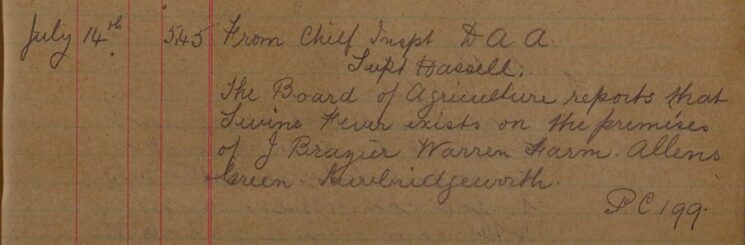 July 14th 5.45 From Chief Inspt D A A.
Supt Dassell.
The Board of Agriculture reports that
Swine Fever exists on the premises
of J. Brazier Warren Farm. Allens
Green. Sawbridgeworth.
PC 199.